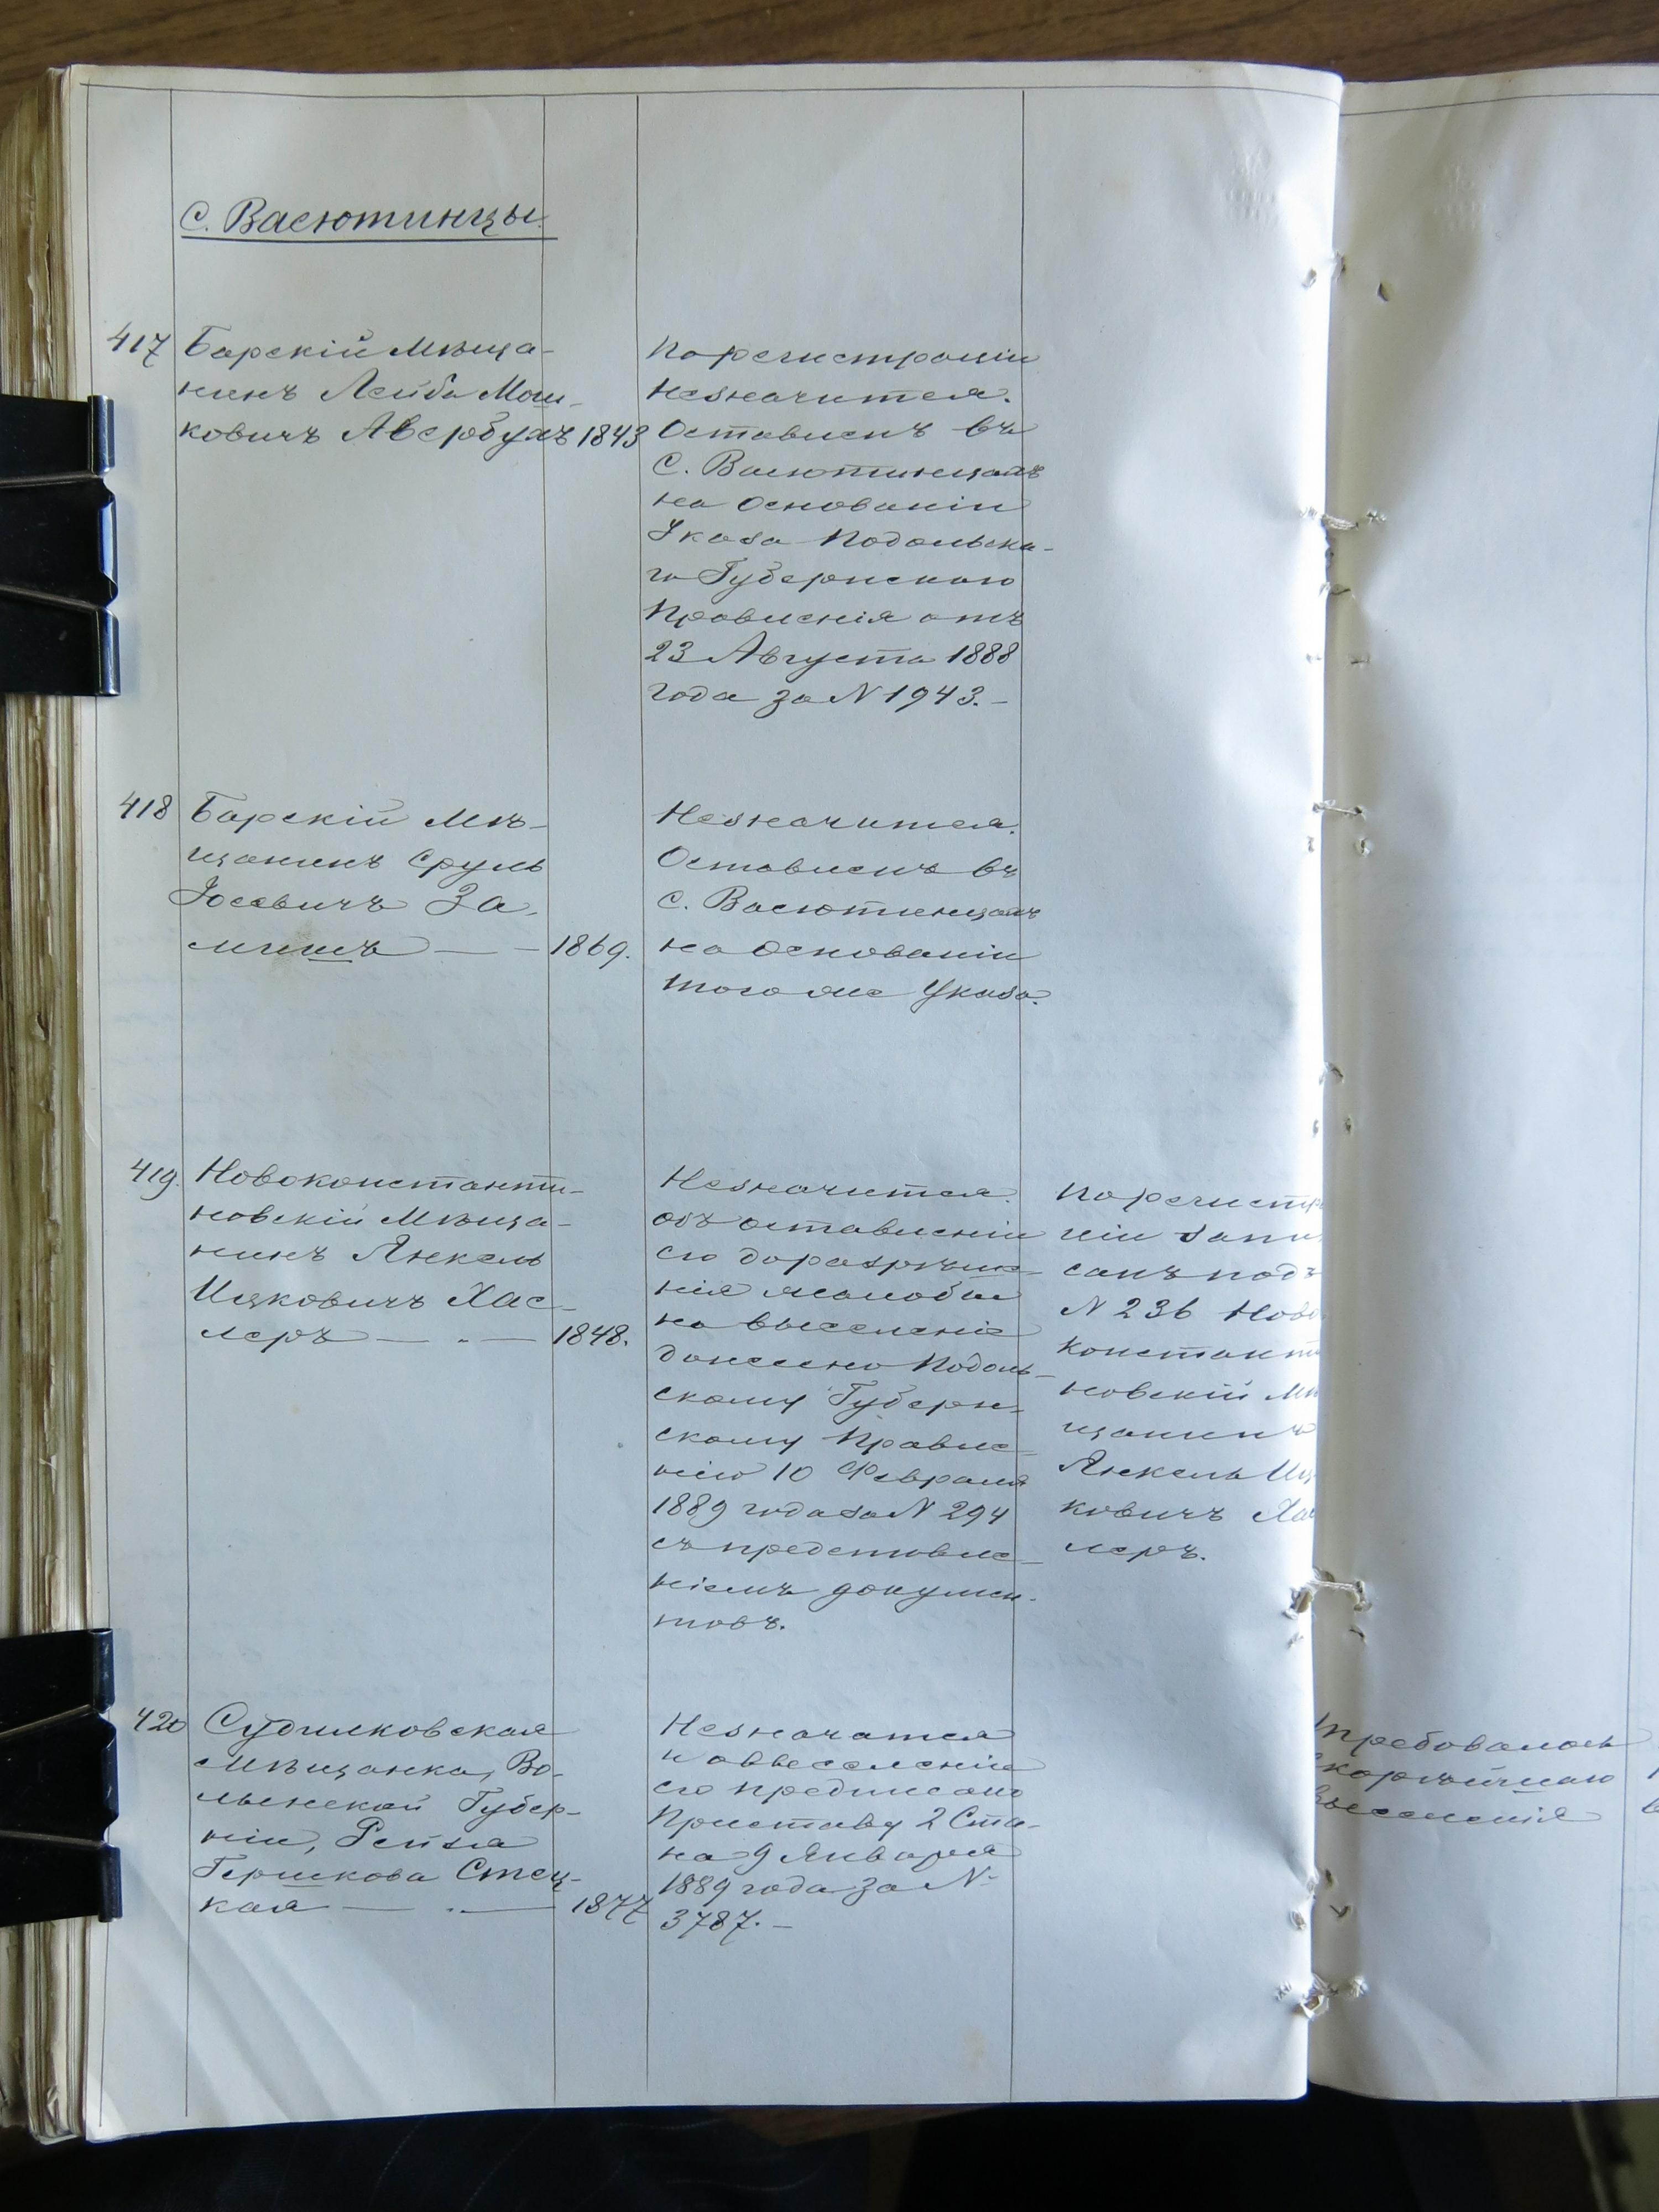 С. Васютинцы.
417 Барскій Мѣща-
нинъ Лейба Мош-
ковичъ Авербухъ 1843
По регистраціи
незначится.
Оставленъ въ
С. Васютинцахъ
на основаніи
Указа Подольска-
го Губернскаго
Правленія отъ
23 Августа 1888
года за N 1943. –
418 Барскій Мѣ-
щанинъ Сруль
Іосевичъ
1869.
Незначится.
Оставленъ въ
С. Васютинцахъ
на основаніи
того же Указа.
419. Новоконстанти-
новскій Мѣща-
нинъ Янкель
Ицковичъ Хас-
леръ — „ — 1848.
Незначится.
объ оставленіи
его до разрѣше-
нія жалобы
на выселеніе
донесено Подоль-
скому Губерн-
скому Правле-
нію 10 Февраля
1889 года за N 294
съ представле-
ніемъ докумен-
товъ.
По регистр
ціи запи
санъ подъ
N 236 Ново
констант
новскій Мѣ
щанинъ
Янкель Иц
ковичъ Ха
леръ.
420 Судилковская
Мѣщанка, Во-
лынской Губер-
ніи, Рейзя
Гершкова Стец-
кая — „ — 1877
Незначатся
и о выселеніи
ея предписано
Приставу 2 Ста-
на 9 Января
1889 года за N
3787. –
требовалось
скорѣйшаго
выселенія